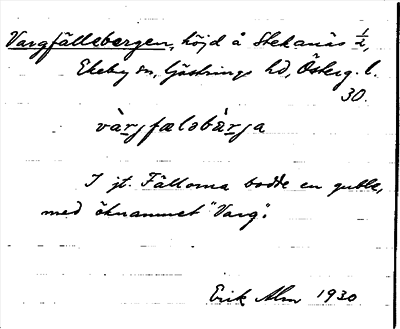 Vargfällebergen, höjd å Stekanäs 1/2,
Ekeby sn, Göstrings hd, Österg. l.
30.
vàrjfæləbàrja
I jt. Fällorna bodde en gubbe,
med öknamnet "Varg".
Erik Alm 1930